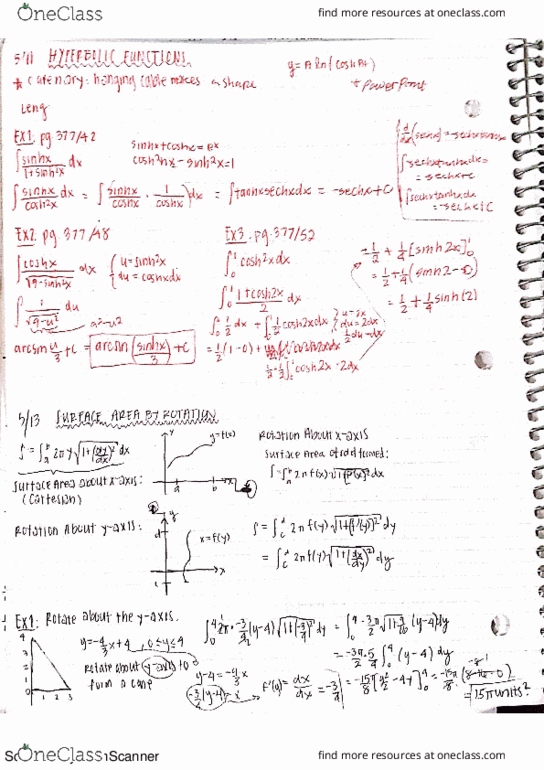 OneClass
find more resources at oneclass.com
5/11 HYPERBOLIC FUNCTIONS
y = A ln(cosh Bt)
* Catenary: hanging cable makes a shape
* PowerPoint
EX1: pg. 377/42
sinhx + coshx = e^x
cosh²x - sinh²x = 1
∫ sinhx/(1+sinh²x) dx
∫ sinhx/cosh²x dx = ∫ (sinhx/coshx · 1/coshx) dx = ∫tanhxsechxdx = -sechx + C
EX2: pg 377/48
∫ coshx/√(9-sinh²x) dx { u = sinh²x
du = coshxdx
∫ 1/√(9-u²) du
a²-u²
arcsin u/3 + C = arcsin(sinhx/3) + C
EX3: pg. 377/52
∫₀¹ cosh²xdx
∫₀¹ (1+cosh2x)/2 dx
∫₀¹ ½dx + ∫₀¹ ½cosh2xdx
{ u = 2x
du = 2dx
½du = dx
= ½(1-0) +
½·½∫₀¹ cosh2x · 2dx
= ½ + ¼[sinh2x]₀¹
= ½ + ¼(sinh2-0)
= ½ + ¼sinh(2)
5/13 SURFACE AREA BY ROTATION
S = ∫ₐᵇ 2πy√(1+(dy/dx)²) dx
Surface Area about x-axis:
(Cartesian)
y
y=f(x)
a
b
x
Rotation About x-axis
Surface area of solid formed:
S = ∫ₐᵇ 2πf(x)·√(1+f'(x))² dx
Rotation About y-axis:
y
d
x=f(y)
x
c
S = ∫_c^d 2πf(y)√(1+(f'(y))²) dy
= ∫_c^d 2πf(y)√(1+(dx/dy)²) dy
EX1: Rotate about the y-axis.
y = -4/3x + 4, 0≤y≤4
Rotate about y-axis to
form a cone
4
3
2
1
1 2 3
y-4 = -4/3x
-3/4(y-4) = x
∫₀⁴ 2π·-3/4(y-4)√(1+(-3/4)²) dy = ∫₀⁴ -3π/2√(1+9/16)(y-4)dy
= -3π/2·5/4 ∫₀⁴ (y-4) dy
= -15π/8[y²/2 - 4y]₀⁴
= 15π units²
OneClass
Scanner
find more resources at oneclass.com